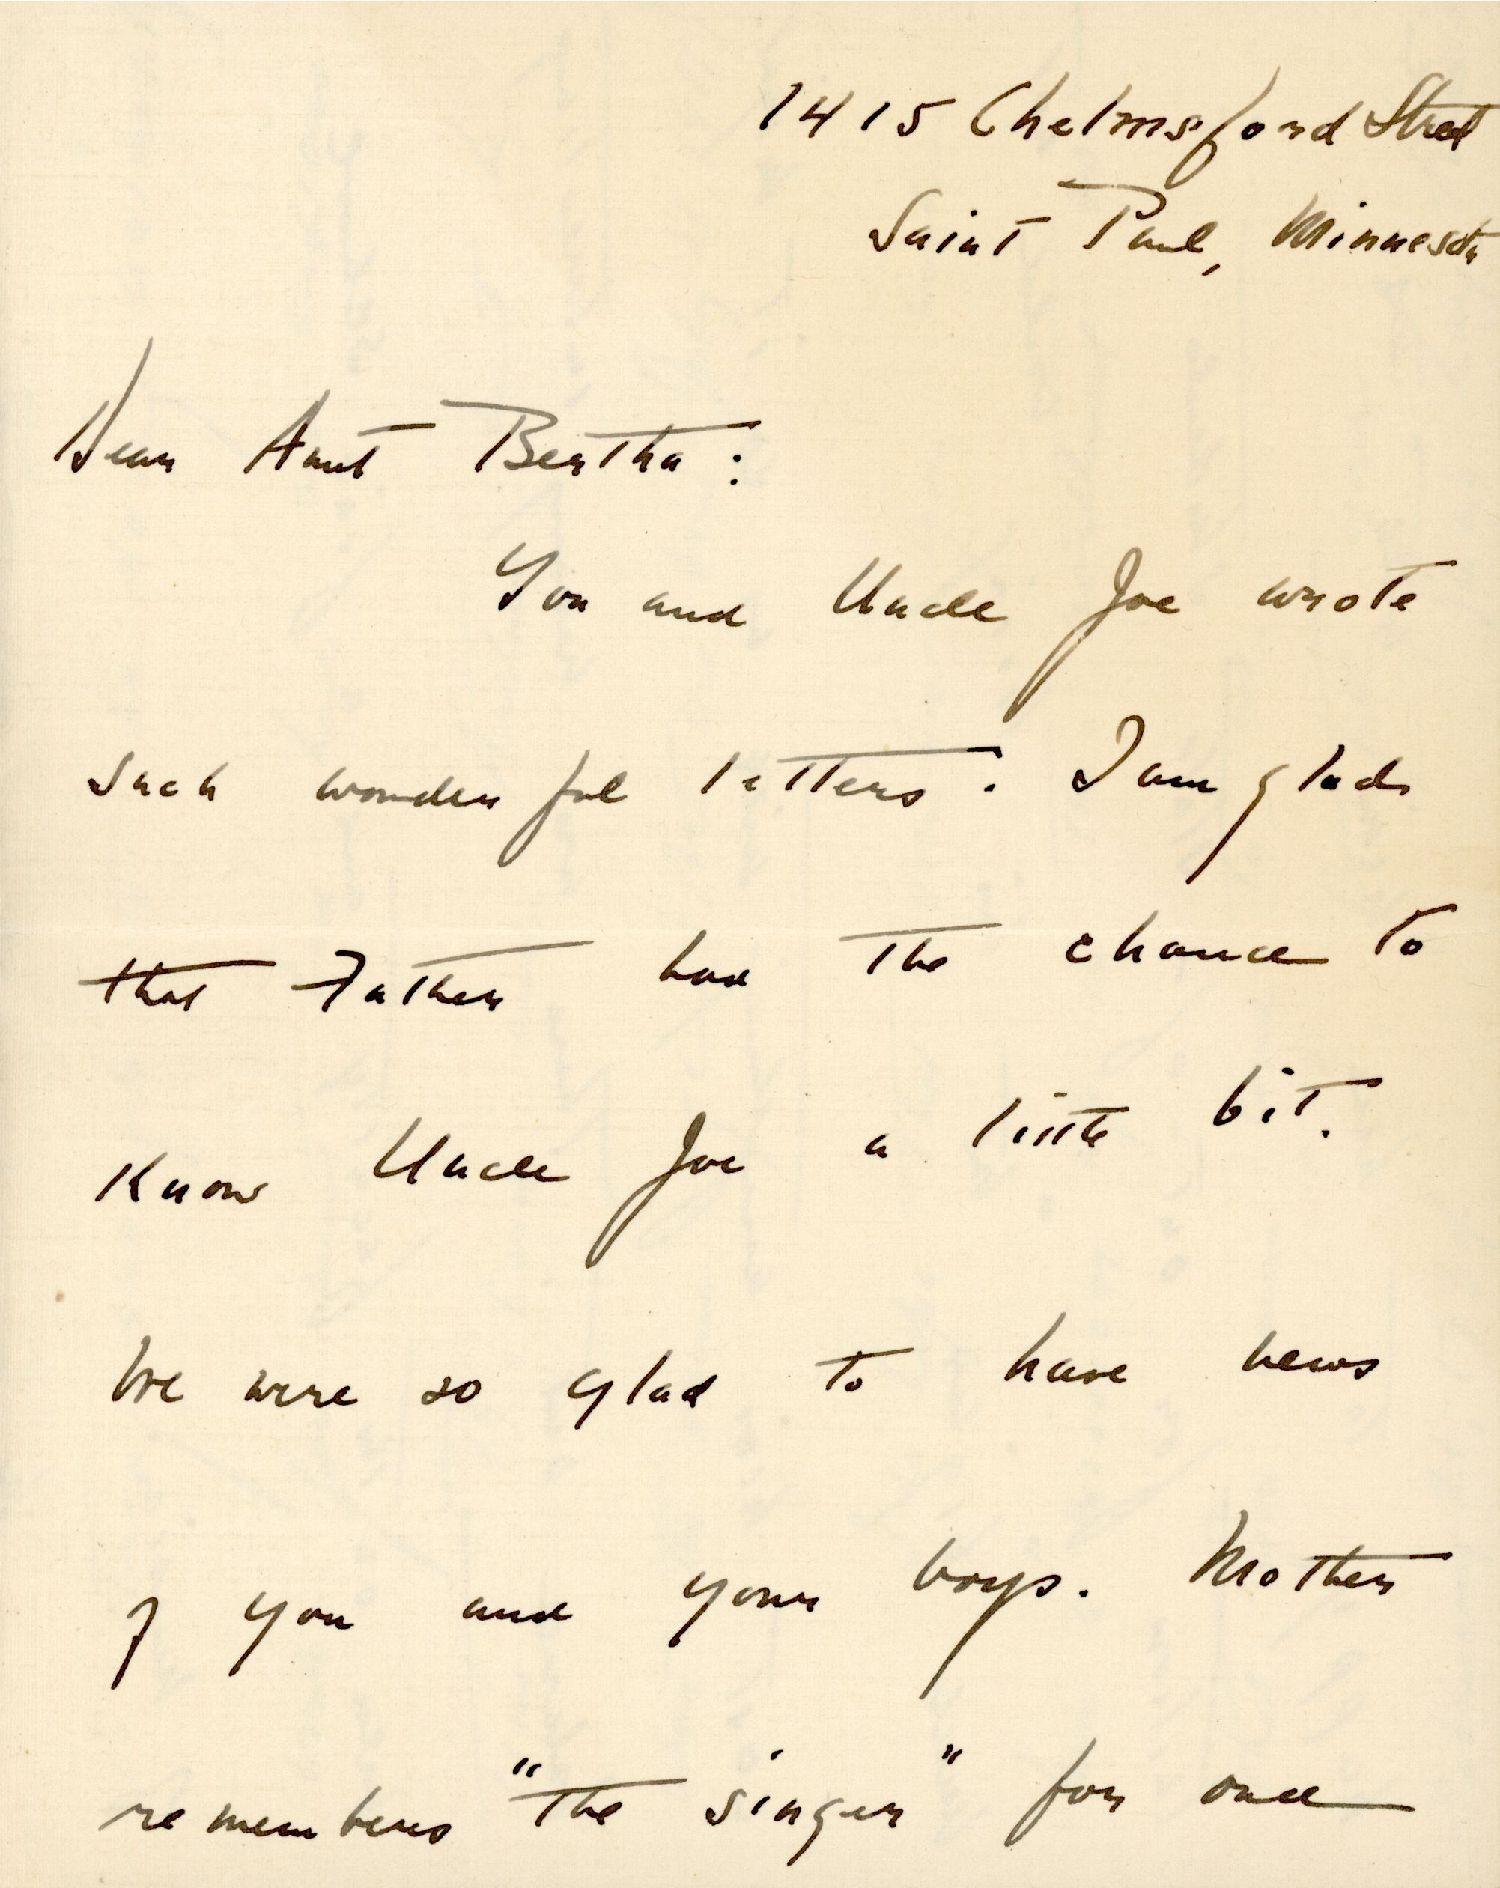 1415 Chelmsford Street
Saint Paul, Minnesota
Dear Aunt Bertha:
You and Uncle Joe wrote
such wonderful letters. I am glad
that Father had the chance to
know Uncle Joe a little bit.
We were so glad to have news
of you and your boys. Mother
remembers "the singer" for once